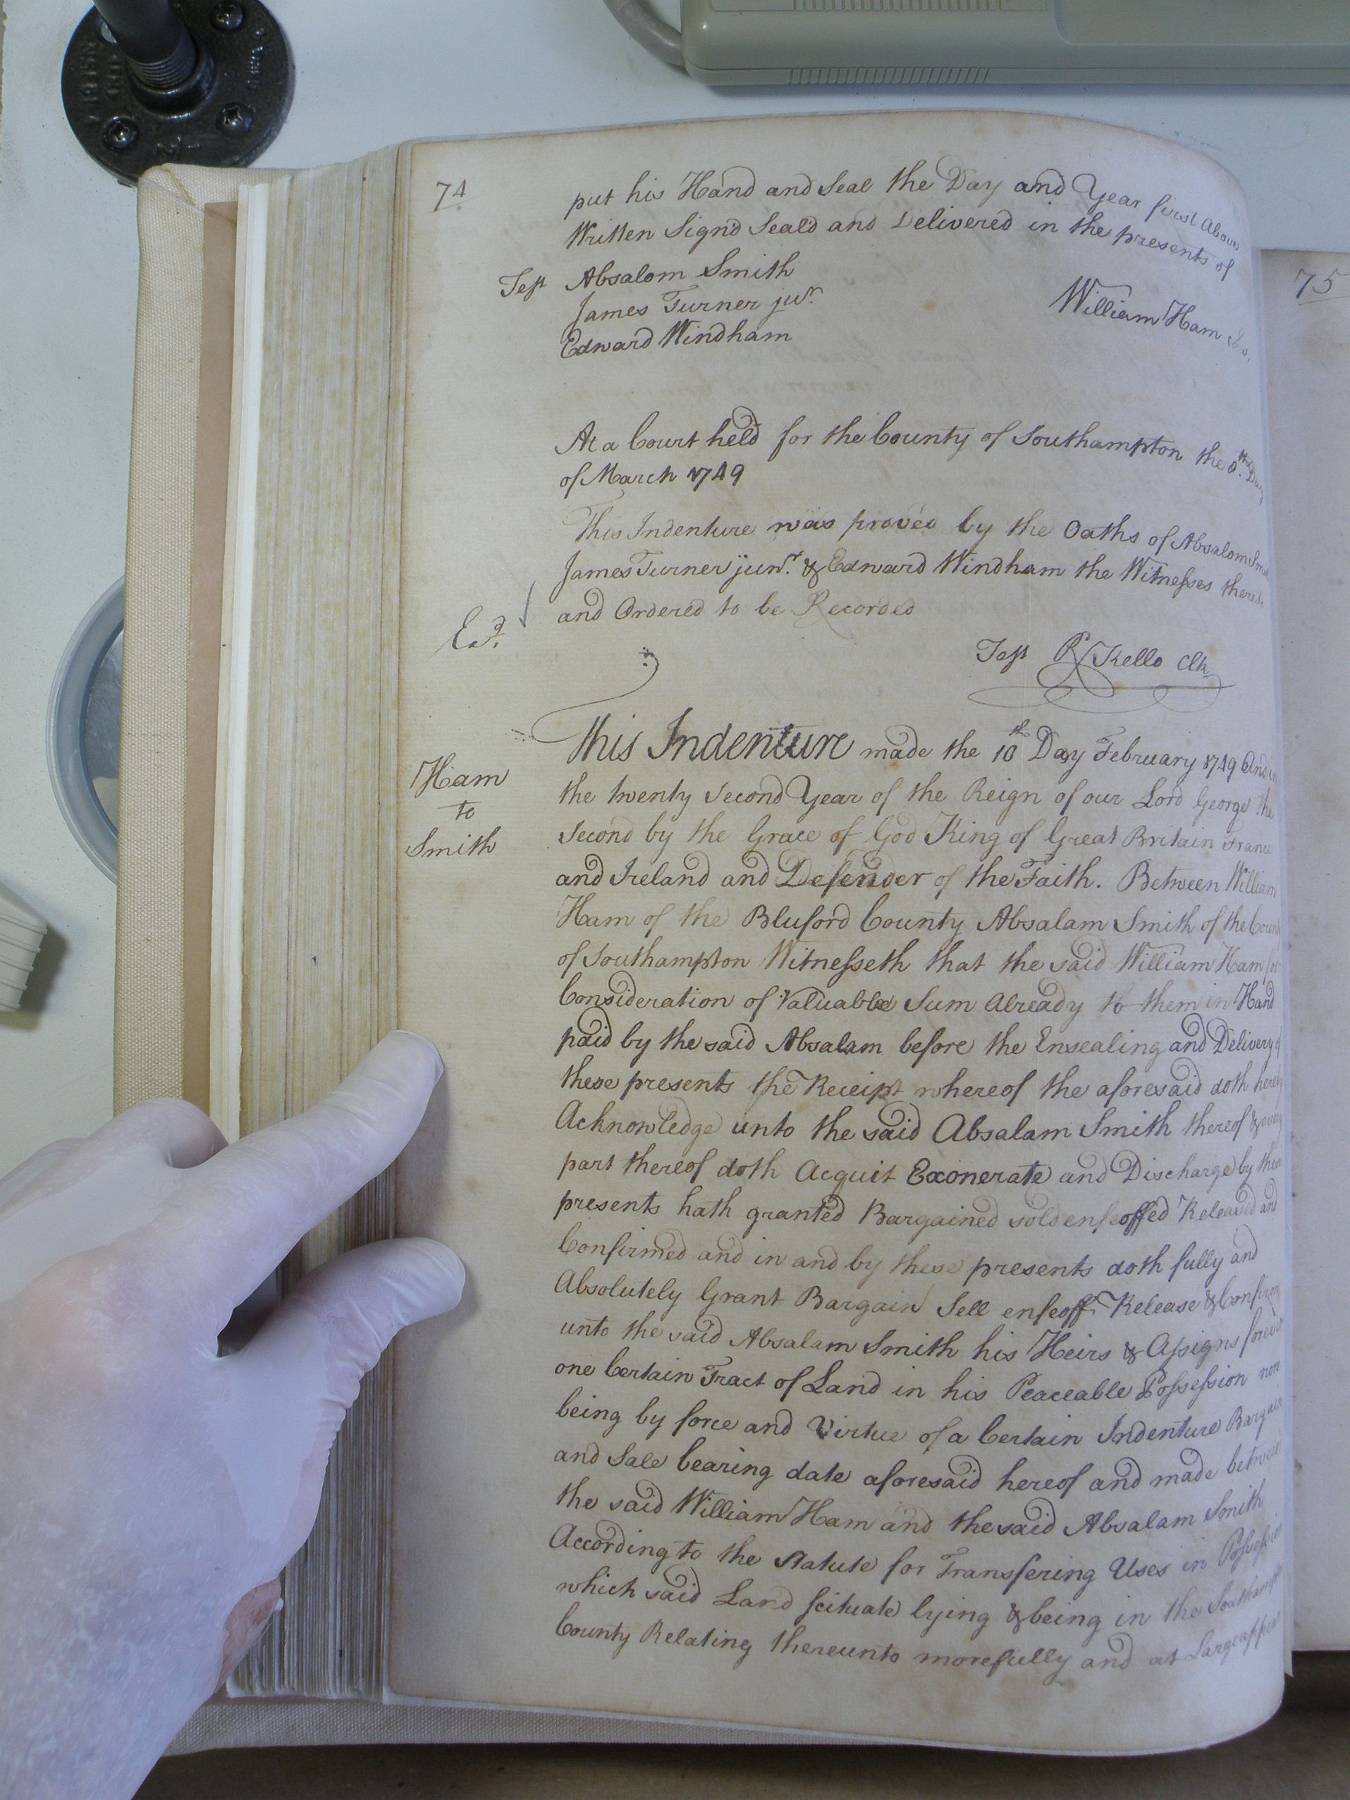 74
put his Hand and Seal the Day and Year first Above
Written Sign'd Seal'd and Delivered in the presents of
Test Absalom Smith
James Turner jur.
William Ham
Edward Windham
At a Court held for the County of Southampton the 8th Day
of March 1749
This Indenture was proved by the Oaths of Absalom
James Turner junr. & Edward Windham the Witnesses
and Ordered to be Recorded
Exd.
Test R Kello Clk
This Indenture made the 10th Day February 1749 And
the twenty Second Year of the Reign of our Lord George the
Second by the Grace of God King of Great Britain France
and Ireland and Defender of the Faith. Between William
Ham of the Bluford County Absalam Smith of the
of Southampton Witnesseth that the said William Ham for
Consideration of Valuable Sum Already to them in Hand
paid by the said Absalam before the Ensealing and Delivery of
these presents the Receipt whereof the aforesaid doth hereby
Acknowledge unto the said Absalam Smith thereof & every
part thereof doth Acquit Exonerate and Discharge by these
presents hath granted Bargained sold enfeoffed Released and
Confirmed and in and by these presents doth fully and
Absolutely Grant Bargain Sell enfeoff Release & Confirm
unto the said Absalam Smith his Heirs & Assigns forever
one Certain Tract of Land in his Peaceable Possession now
being by force and Virtue of a Certain Indenture Bargain
and Sale bearing date aforesaid hereof and made between
the said William Ham and the said Absalam Smith
According to the Statute for Transfering Uses in Possession
which said Land scituate lying & being in the
County Relating thereunto morefully and at Large
Ham
to
Smith
75